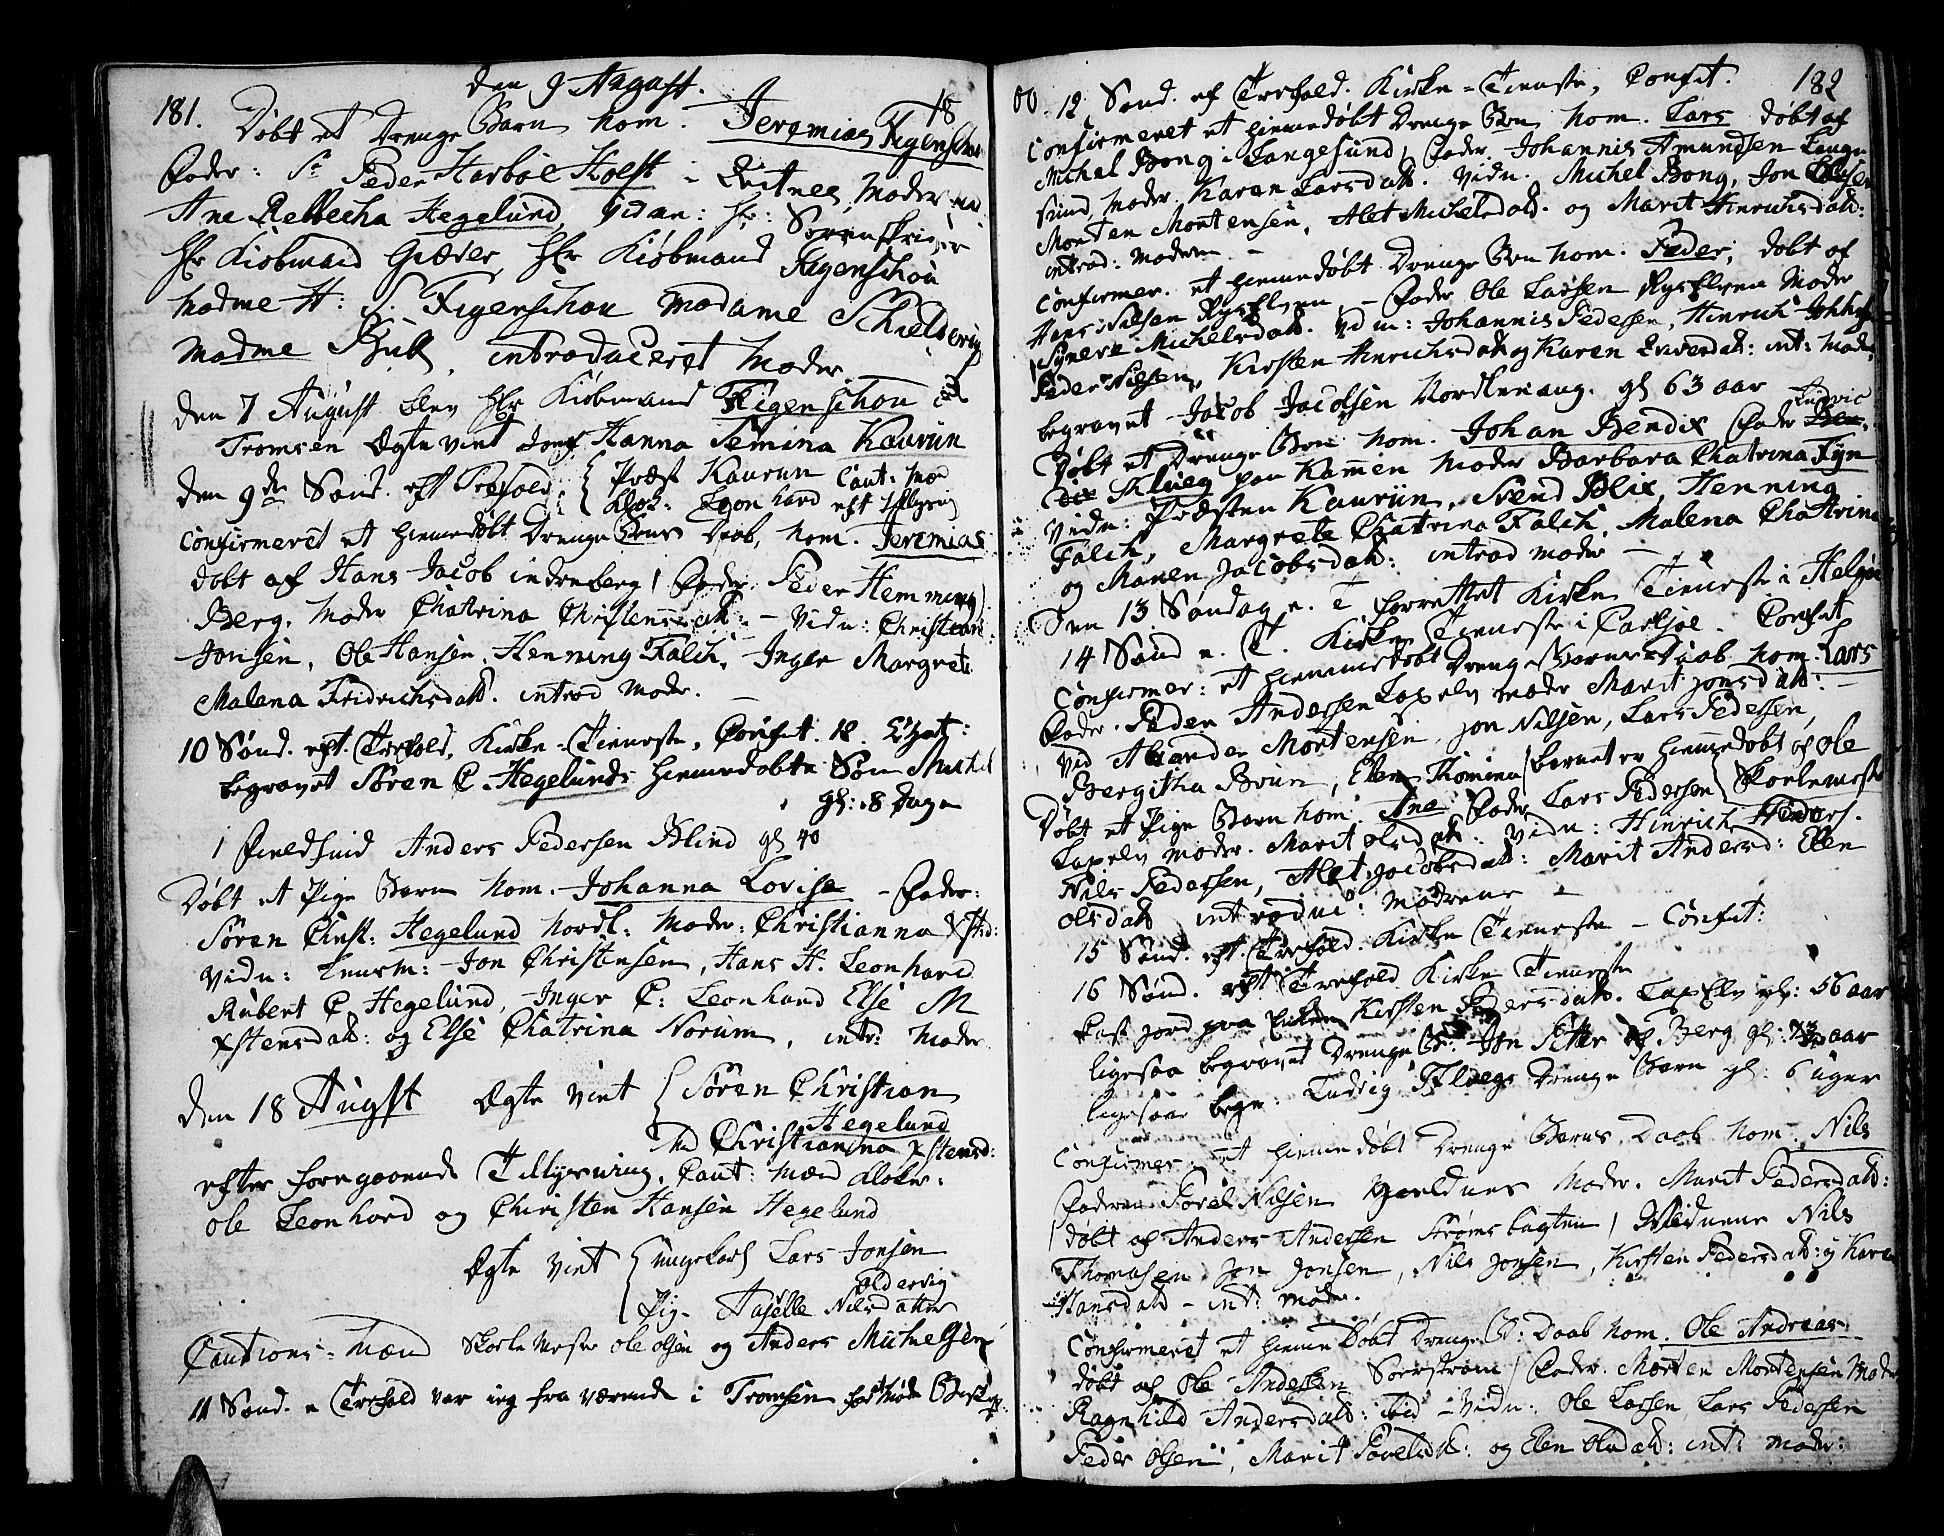 181.
den 9 August.
18
Døbt et Drenge Barn nom. Jeremias Figenschou
Fader: Sr Peder Harboe Holst i Qvitnes, Moder Mad.
Ane Rebbecha Hegelund, Vidn: Hr: Sorenskriver
Hr Kiøbmand Giæver, Hr Kiøbmand Figenschou
Madme H: S. Figenschou Madame Schielderup
Madme Bull, introduceret Moder.
den 7 August blev Hr Kiøbmand Figenschou af
Tromsen Ægte viet Jomf Hanna Semina Kaurin
den 9de Sønd. eft Trefold. { Præst Kaurin Caut: Mæ
Klok: Leonhard eft
Confirmeret et hiemedøbt Drenge Barns Daab, nom. Jeremias
døbt af Hans Jacob indreberg / Fader: Peder Hemming
Berg. Moder Chatrina Christensdatt: – Vidn: Christian
Jonsen, Ole Hansen, Henning Falch, Inger Margrete
Malena Fridrichsdatt. introd Moder. –
10 Sønd. eft. Trefold, Kirke-Tieneste, Confit. 18.
begravet Søren C. Hegelunds hiemedøbte Søn Michel
gl: 8 Dage
1 Fieldfind Anders Pedersen Blind gl 40
Døbt et Pige Barn nom. Johanna Lovise – Fader:
Søren Christ: Hegelund Nordl: Moder: Christianna Xstd:
Vidn: Jon Christensen, Hans H. Leonhard
Rubert C Hegelund, Inger C: Leonhard Else M
Xstensdatt: og Else Chatrina Norum, intr: Moder
den 18 Augst Ægte viet { Søren Christian
Hegelund
Md Christianna Xstensd:
efter foregaaende Tillysning, Caut: Mænd Kloker:
Ole Leonhard og Christen Hansen Hegelund
Ægte viet { ungekarl Lars Jonsen
Oldervig
Pig. Tajelle Nilsdatter
Cautions-Mænd Skole Mester Ole Olsen og Anders Michelsen
11 Sønd. e Trefold var ieg fra værende i Tromsen for at møde
00. 12 Sønd. ef Trefold. Kirke-Tieneste, Confit.
182
Confirmeret et hiemedøbt Drenge Brn nom. Lars døbt af
Michel Bong i Langesund / Fader Johannis Amundsen Lange
sund Moder Karen Larsdatt. Vidn. Michel Bong, Jon Olsen
Morten Mortensen, Alet Michelsdatt. og Marit Hinrichsdatt:
introd: Moderen –
Confirmer. et hiemedøbt Drenge Brn nom. Peder, døbt af
Hans Nilsen Rysselven – Fader Ole Larsen Rysselven Moder
Synneve Michelsdatt. Vidn: Johannis Pedersen, Hinrich
Peder Nilsen, Kirsten Hinrichsdatt og Karen Iversdatt: int: Moder
begravet Jacob Jacobsen Nordlenang. gl 63 aar
Ludvic
Døbt et Drenge Brn nom. Johan Bendix Fader
Kluog paa Kamen Moder Barbara Chatrina Fyn
Vidn: Præsten Kauriin, Svend Blix, Henning
Falch, Margrete Chatrina Falch, Malena Chatrina
og Maren Jacobsdatt: introd Moder –
Den 13 Søndag e. T forrettet Kirke Tieneste i Helgøe
14 Sønd e. T. Kirke Tieneste i Carlsøe. Confit
Confirmer: et hiemedøbt Drenge Barns Daab nom. Lars
Fader. Peder Andersen Lapelv Moder Marit Jonsdatt: –
Vid Alexander Mortensen Jon Nilsen, Lars Pedersen,
Bergitha Brun, Elen Thomina / barnet er hiemedøbt af Ole
Døbt et Pige Barn nom: Ane Fader Lars Pedersen { Skolemester
Lapelv Moder. Marit Olsdatt: Vidn: Hinrich Peders.
Nils Pedersen, Alet Jacobsdatt: Marit Andersd: Elen
Olsdatt introdue: Mødrene –
15 Sønd. eft. Trefold. Kirke Tieneste – Confit:
16 Sønd. eft Trefold Kirke Tieneste
Kast Jord paa Kirsten Pedersdatt. Lapelv gl: 56 aar
ligesaa begravet Drenge Br: Jon Peter af Berg gl: aar
ligesaa begr: Ludvig Kluogs Drenge Barn gl: 6 uger
Confirmer et hiemedøbt Drenge Barns Daab nom. Nils
Faderen Povel Nilsen Moder. Marit Pedersdatt:
/ døbt af Anders Andersen Strømsbugten / Vidnene Nils
Thomasen Jon Jonsen, Nils Jonsen, Kirsten Pedersdatt: og Karen
Hansdatt – int: Moder.
Confirmeret et hiemedøbt Drenge B: Daab nom. Ole Andreas
døbt af Ole Andersen Sørstrøm / Fader. Morten Mortensen Moder
Ragnhild Andersdatt: ibid – Vidn: Ole Larsen Lars Pedersen
Peder Olsen, Marit Povelsd: og Elen Olsdatt: int: Moder: